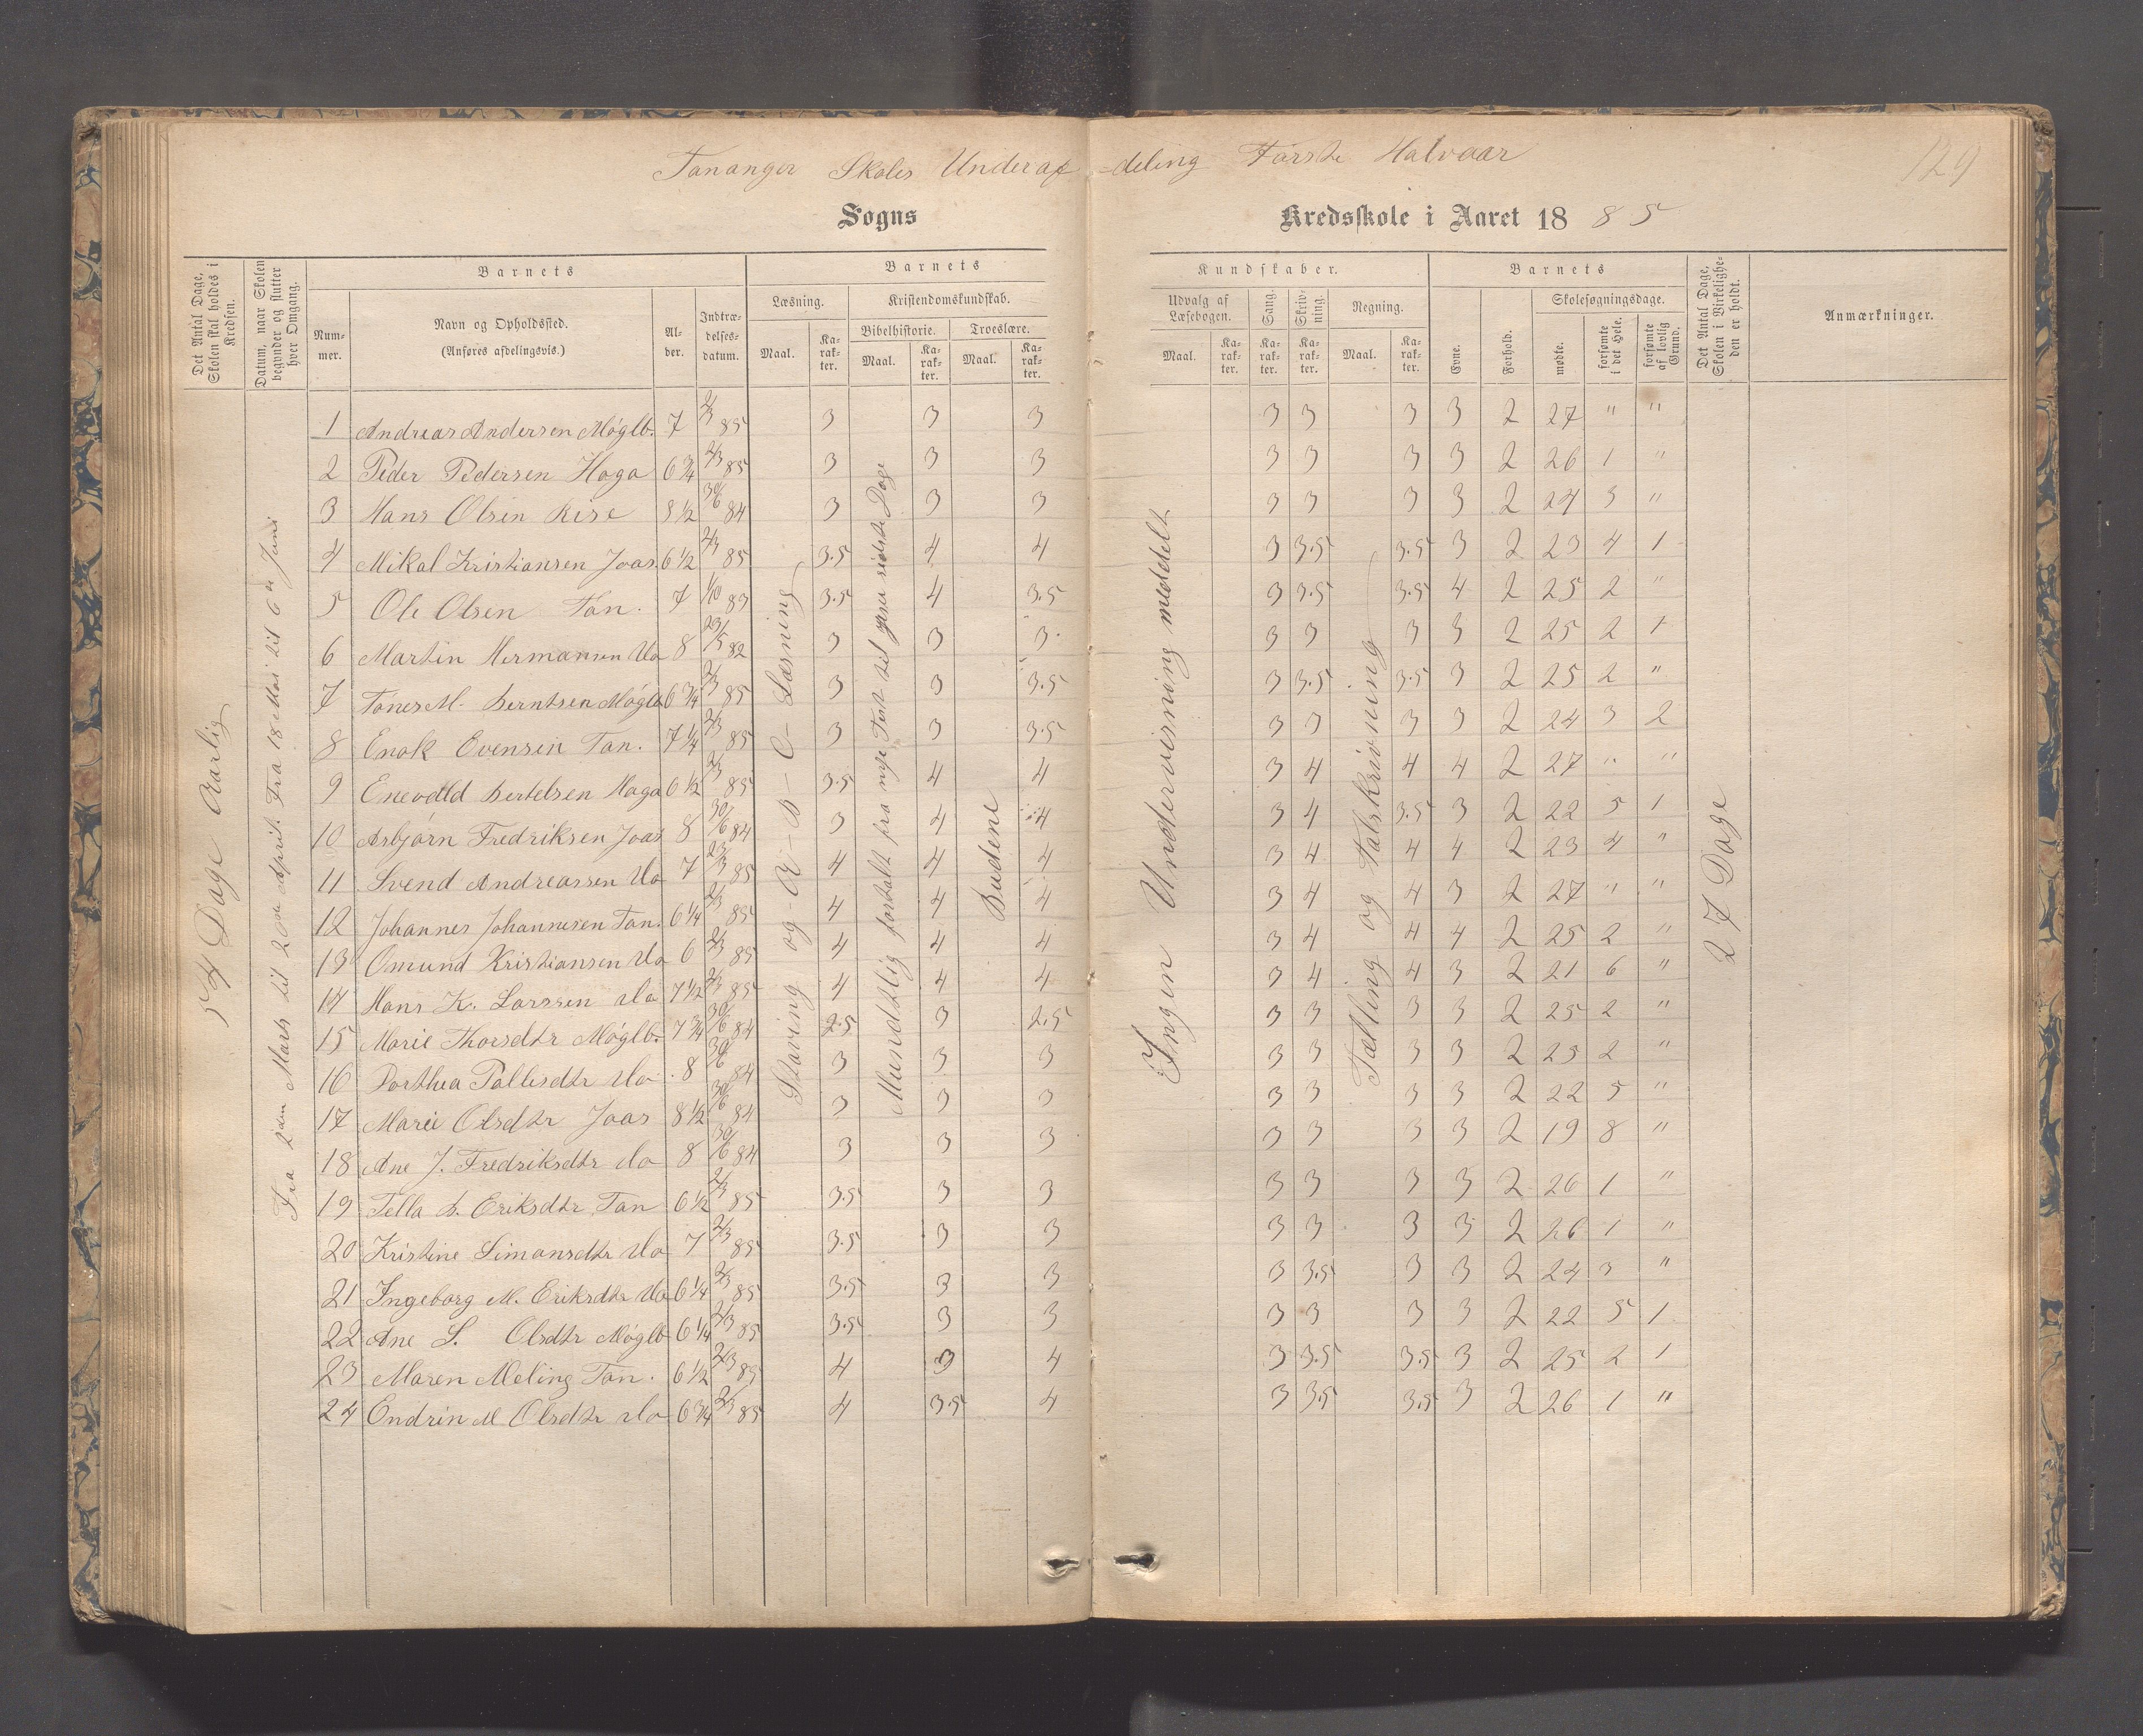 Tananger Skoles Underaf-deling Første Halvaar
129
Sogns Kredsskole i Aaret 1885
Det Antal Dage, Skolen skal holdes i Kredsen.
Datum, naar Skolen begynder og slutter hver Omgang.
Barnets
Nummer.
Navn og Opholdssted.
(Anføres afdelingsvis.)
Alder.
Indtrædelsesdatum.
Barnets Kundskaber.
Læsning.
Maal. Karakter.
Kristendomskundskab.
Bibelhistorie. Troeslære.
Maal. Karakter. Maal. Karakter.
Udvalg af Læsebogen.
Maal. Karakter.
Sang. Karakter.
Skrivning. Karakter.
Regning.
Maal. Karakter.
Barnets
Evne. Forhold.
Skolesøgningsdage.
mødte. forsømte i det Hele. forsømte af lovlig Grund.
Det Antal Dage, Skolen i Virkeligheden er holdt.
Anmærkninger.
54 Dage Aarlig
Fra 2den Marts til 20de April. Fra 18 Mai til 6te Juni
Staving og A-B-C-Læsning
Mundtlig fortalt fra nye Test til sidste Dage
Budene
Ingen Undervisning meddelt
Tælling og Talskrivning
27 Dage
1 Andreas Andersen Møglb. 7 2/3 85 3 3 3 3 3 3 3 2 27 " "
2 Peder Pedersen Haga 6 3/4 2/3 85 3 3 3 3 3 3 3 2 26 1 "
3 Hans Olsen Risе 8 1/2 30/6 84 3 3 3 3 3 3 3 2 24 3 "
4 Mikal Kristiansen Joas. 6 1/2 2/3 85 3.5 4 4 3 3.5 3.5 3 2 23 4 1
5 Ole Olsen Tan. 7 1/10 83 3.5 4 3.5 3 3.5 3.5 4 2 25 2 "
6 Martin Hermansen do 8 23/5 82 3 3 3 3 3 3 3 2 25 2 1
7 Tønes M. Berntsen Møglb 6 3/4 2/3 85 3 3 3.5 3 3.5 3.5 3 2 25 2 "
8 Enok Evensen Tan. 7 1/4 2/3 85 3 3 3.5 3 3 3 3 2 24 3 2
9 Enevald Bertelsen Haga 6 1/2 2/3 85 3.5 4 4 3 4 4 4 2 27 " "
10 Asbjørn Fredriksen Joas 8 30/6 84 3 4 4 3 4 3.5 3 2 22 5 1
11 Svend Andreassen do 7 23/3 85 4 4 4 3 4 4 4 2 23 4 "
12 Johannes Johannesen Tan. 6 1/4 2/3 85 4 4 4 3 4 4 3 2 27 " "
13 Omund Kristiansen do 6 2/3 85 4 4 4 3 4 4 4 2 25 2 "
14 Hans K. Larssen do 7 1/2 2/3 85 4 4 4 3 4 4 3 2 21 6 "
15 Marie Thorsdtr Møglb. 7 3/4 30/6 84 2.5 3 2.5 3 3 3 3 2 25 2 "
16 Dorthea Pallesdtr do 8 30/6 84 3 3 3 3 3 3 3 2 25 2 "
17 Marie Olsdtr Joas 8 1/2 30/6 84 3 3 3 3 3 3 3 2 22 5 "
18 Ane J. Fredriksdtr do 8 30/6 84 3 3 3 3 3 3 3 2 19 8 "
19 Tella B. Eriksdtr Tan 6 1/2 2/3 85 3.5 3 3 3 3 3 3 2 26 1 "
20 Kristine Simonsdtr do 7 2/3 85 3.5 3 3 3 3 3 3 2 26 1 "
21 Ingeborg M. Eriksdtr do 6 1/4 2/3 85 3.5 3 3 3 3.5 3 3 2 24 3 "
22 Ane S. Olsdtr Møglb 6 1/4 2/3 85 3.5 3 3 3 3 3 3 2 22 5 1
23 Maren Meling Tan. 6 1/2 2/3 85 4 3 4 3 3.5 3.5 3 2 25 2 1
24 Endrin M Olsdtr do 6 3/4 2/3 85 4 3.5 4 3 3.5 3.5 3 2 26 1 "